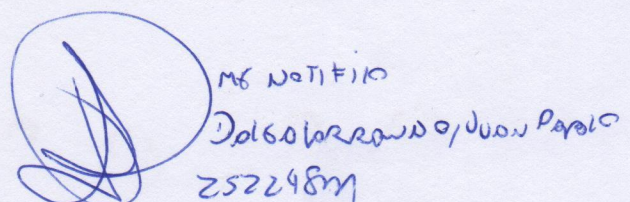 Me NOTIFICO
Dolgalarrondo, Juan Pablo
25224899